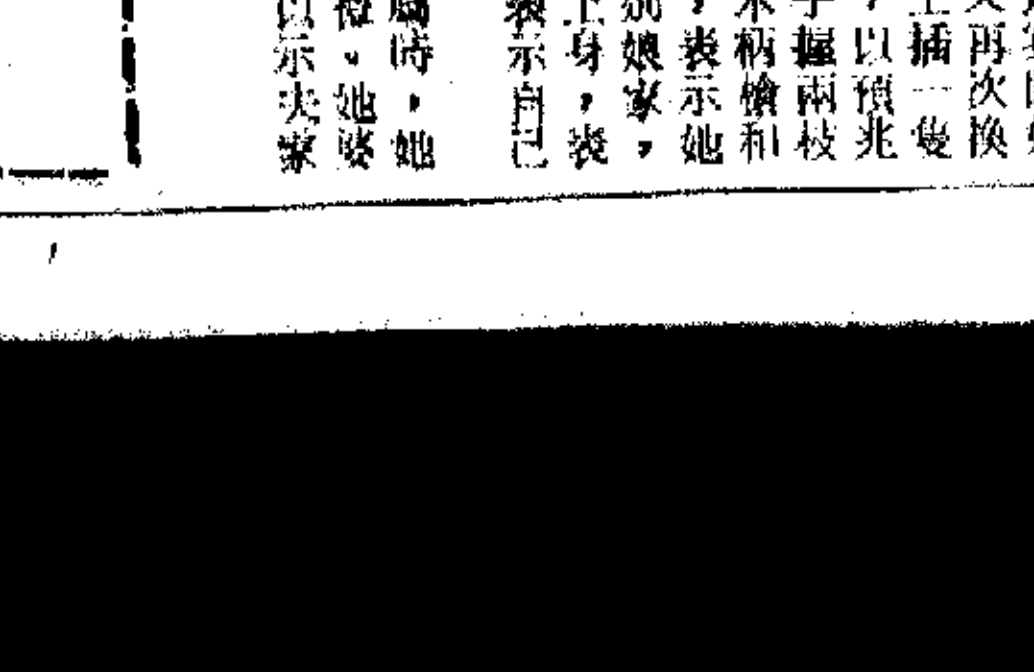 再次換
插一隻
，以預兆
手握兩枝
木柄槍和
，表示她
娘家，
上身，表
表示自己
時，她
。她婆
以示夫家